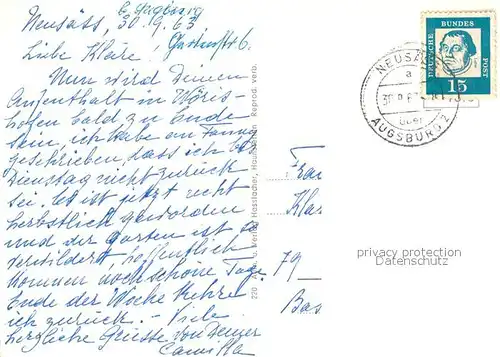 b. Augsburg
Neusäss, 30.9.63
Gartenstr. 6.
Liebe Kläre!
Nun wird Deinen
Aufenthalt in Wöris-
hofen bald zu Ende
sein, ich habe an
geschrieben, dass ich
Dienstag nicht zurück
sei. Es ist jetzt recht
herbstlich geworden
und der Garten ist so
verwildert, hoffentlich
kommen noch schöne Tage.
Ende der Woche kehre
ich zurück. – Viele
herzliche Grüsse von Deiner
Camilla
220 Verlag Hasslacher, Reprod. verb.
Frau
Klar
79
Bas
DEUTSCHE BUNDES POST
15
NEUSÄ
a
über
AUGSBURG 2
privacy protection
Datenschutz